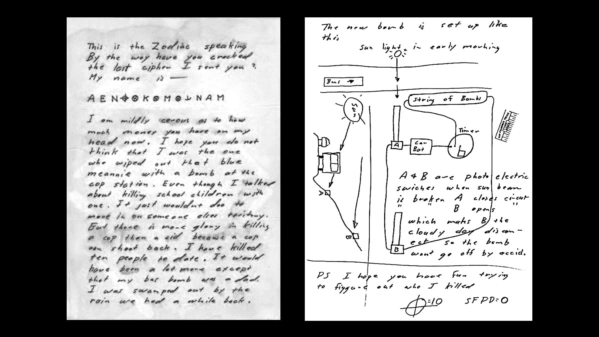 This is the Zodiac speaking
By the way have you cracked
the last cipher I sent you ?
My name is —
AEN⊕⊗K⊗M⊗⌟NAM
I am mildly cerous as to how
much money you have on my
head now. I hope you do not
think that I was the one
who wiped out that blue
meannie with a bomb at the
cop station. Even though I talked
about killing school children with
one. It just wouldnt doo to
move in on someone elses teritory.
But there is more glory in killing
a cop than a cid because a cop
can shoot back. I have killed
ten people to date. It would
have been a lot more except
that my bus bomb was a dud.
I was swamped out by the
rain we had a while back.
The new bomb is set up like
this
sun light in early morning
Bus →
SUN
String of Bombs
Timer
A
Car Bat
A & B are photo electric
switches when sun beam
is broken A closes circut
B opens
which maks B the
cloudy day discon-
ect so the bomb
wont go off by accid.
A
B
B
PS I hope you have fun trying
to figgure out who I killed
⌖=10 SFPD=0